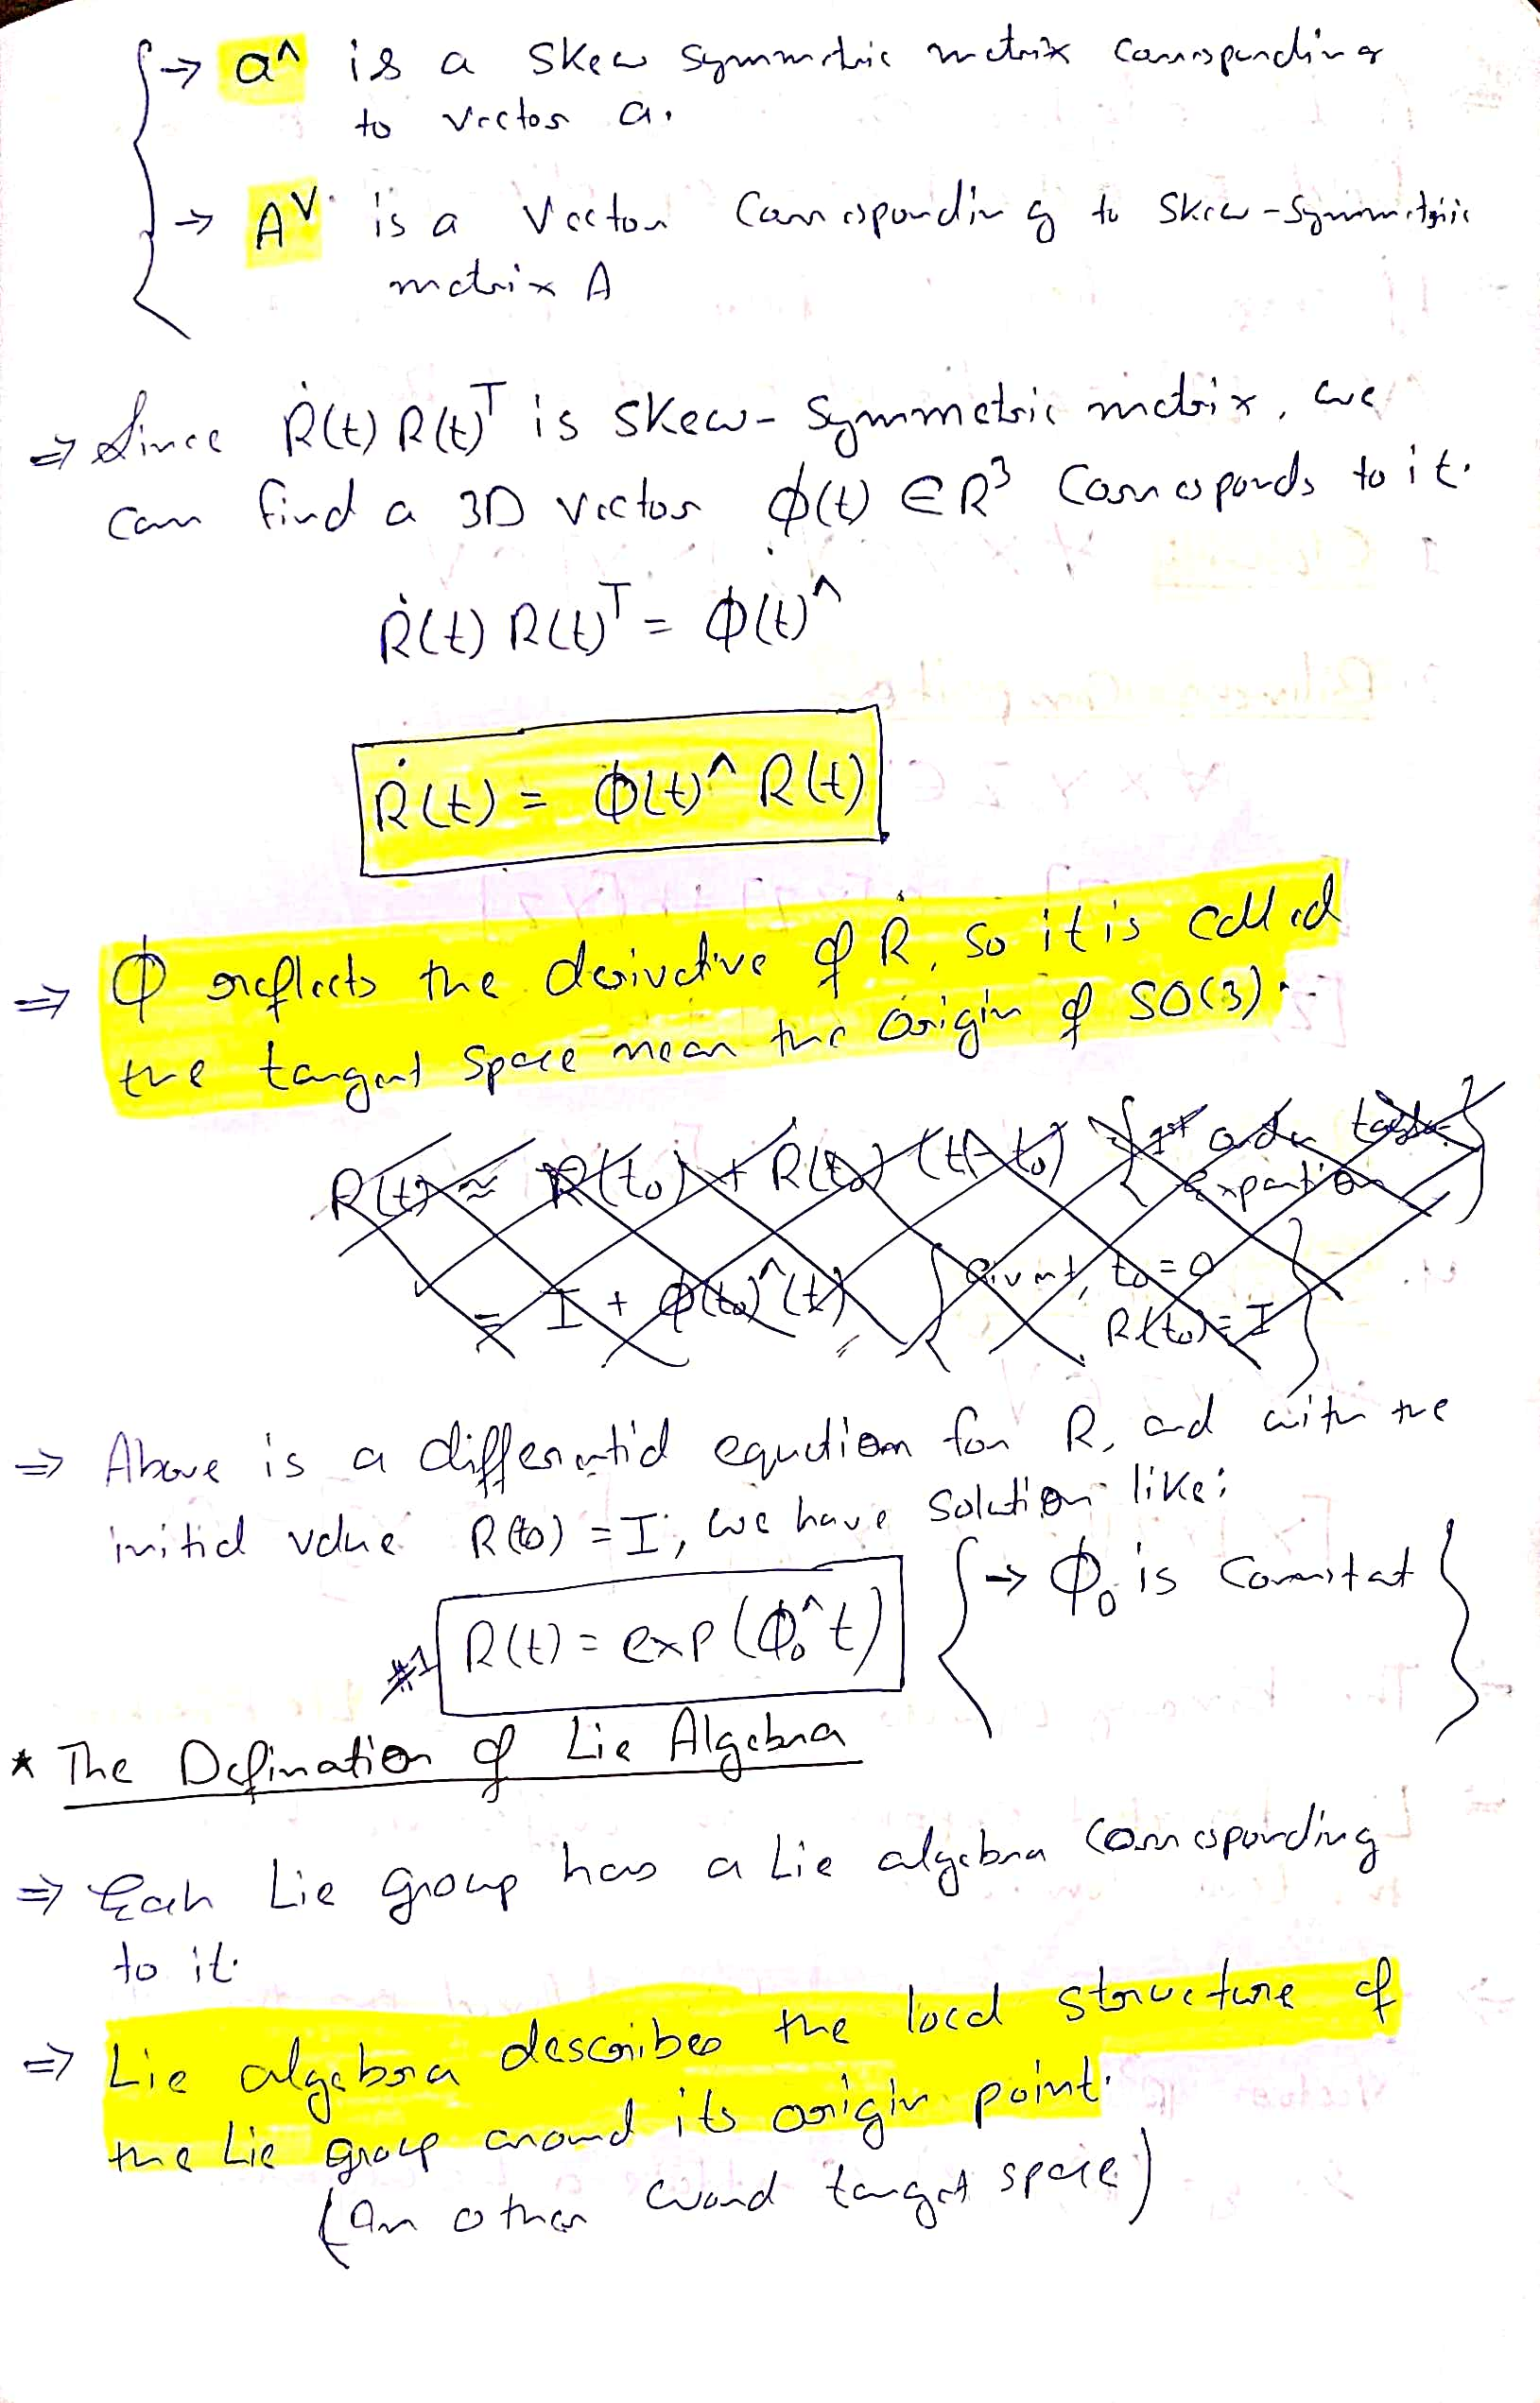 → a^ is a skew symmetric matrix corresponding
to vector a.
→ A^V is a vector corresponding to skew-symmetric
matrix A
⇒ Since Ṙ(t) R(t)^T is skew-symmetric matrix, we
can find a 3D vector ϕ(t) ∈ R^3 corresponds to it.
Ṙ(t) R(t)^T = ϕ(t)^
Ṙ(t) = ϕ(t)^ R(t)
⇒ ϕ reflects the derivative of R, so it is called
the tangent space near the origin of SO(3).
R(t) ≈ R(t₀) + Ṙ(t₀) (t-t₀) { 1st order
expantion }
= I + ϕ(t₀)^ (t) { Given, t₀ = 0
R(t₀) = I }
⇒ Above is a differential equation for R, and with the
initial value R(t₀) = I, we have solution like:
#1 R(t) = exp(ϕ₀^ t) { → ϕ₀ is constat }
* The Defination of Lie Algebra
⇒ Each Lie group has a Lie algebra corresponding
to it.
⇒ Lie algebra describes the local structure of
the Lie group around its origin point.
(In other word tanget space)